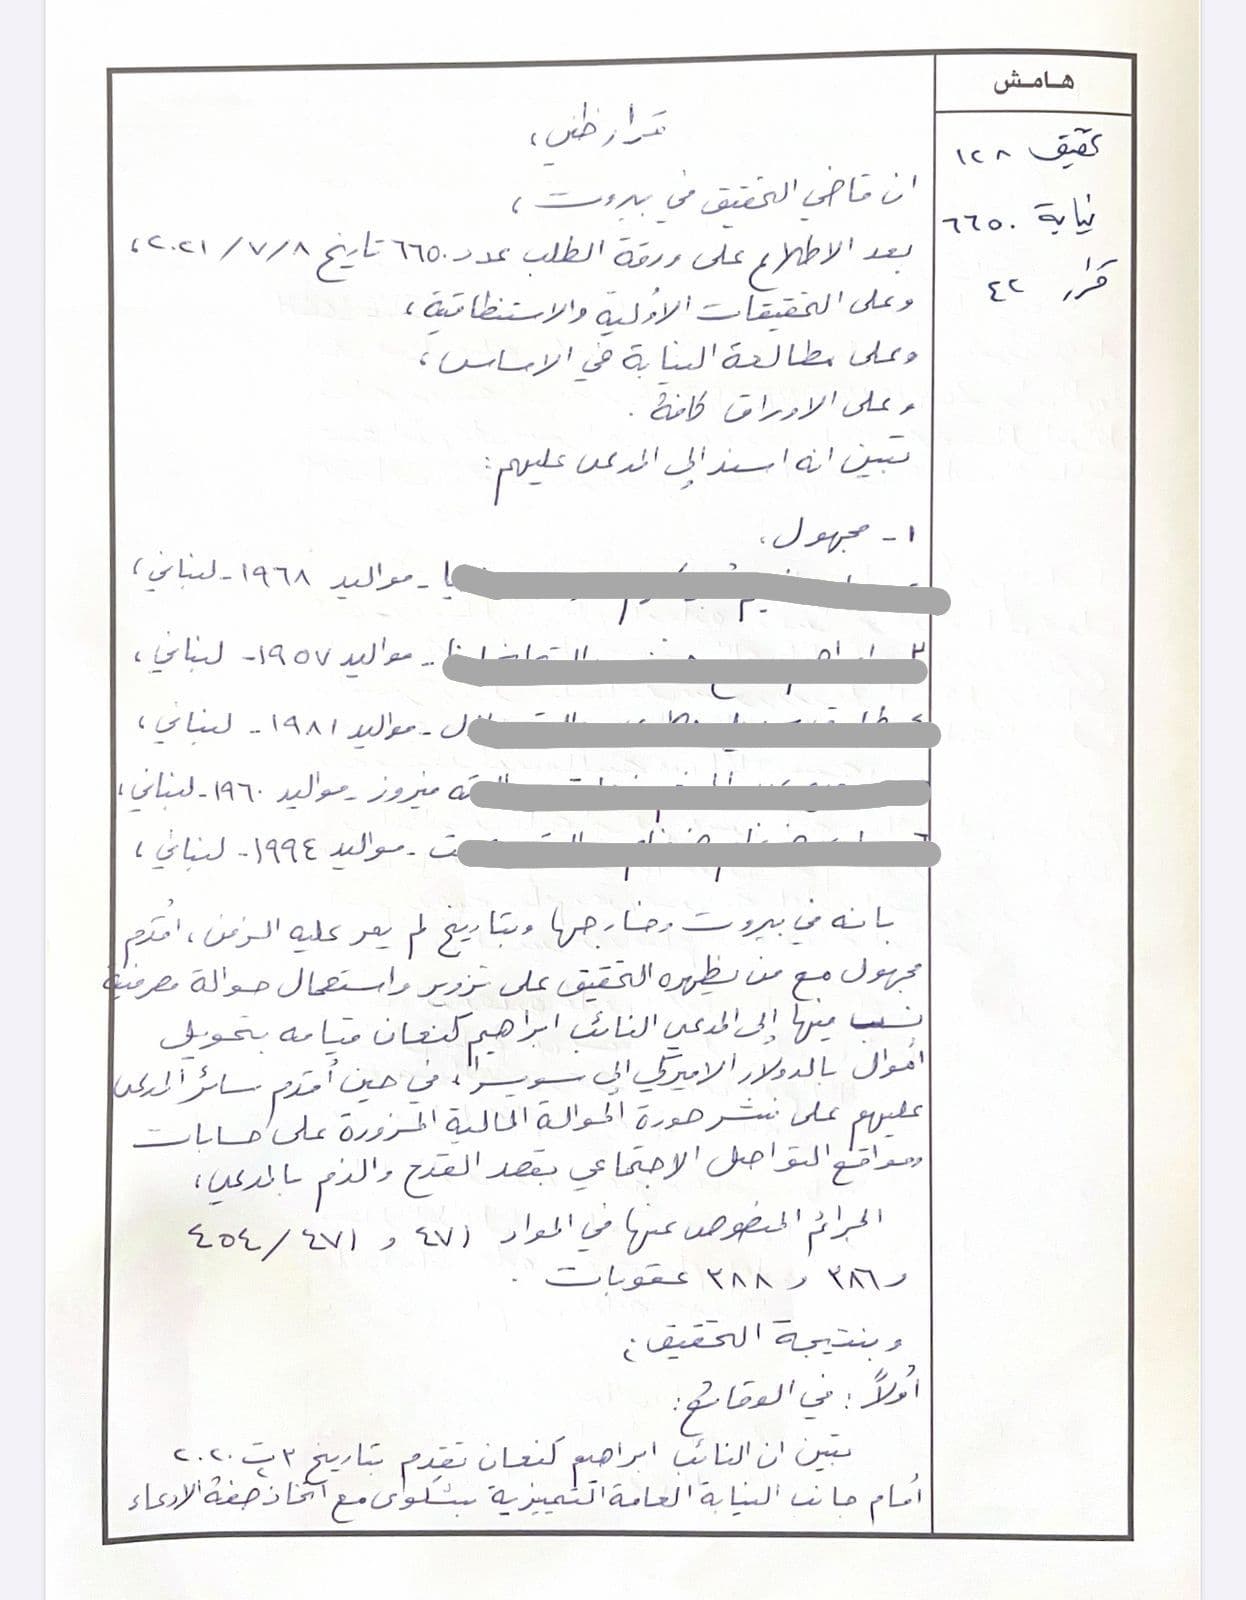 هامش
تحقيق ١٢٨
نيابة ٦٦٥٠
قرار ٤٢
قرار ظني،
ان قاضي التحقيق في بيروت،
بعد الاطلاع على ورقة الطلب عدد ٦٦٥٠ تاريخ ٨/٧/٢٠٢١،
وعلى التحقيقات الأولية والاستنطاقية،
وعلى مطالعة النيابة في الاساس،
وعلى الاوراق كافة.
تبين انه اسند إلى المدعى عليهم:
١- مجهول،
- مواليد ١٩٦٨ - لبناني،
- مواليد ١٩٥٧ - لبناني،
- مواليد ١٩٨١ - لبناني،
فيروز - مواليد ١٩٦٠ - لبناني،
- مواليد ١٩٩٤ - لبناني،
بانه في بيروت وخارجها وبتاريخ لم يمر عليه الزمن، أقدم
مجهول مع من يظهره التحقيق على تزوير واستعمال حوالة مصرفية
نسب فيها إلى المدعي النائب ابراهيم كنعان قيامه بتحويل
أموال بالدولار الاميركي إلى سويسرا، في حين أقدم سائر المدعى
عليهم على نشر صورة الحوالة المالية المزورة على حسابات
ومواقع التواصل الاجتماعي بقصد القدح والذم بالمدعي،
الجرائم المنصوص عنها في المواد ٤٧١ و ٤٧١/٤٥٤
و ٣٨٦ و ٣٨٨ عقوبات.
وبنتيجة التحقيق؛
أولاً: في الوقائع:
تبين ان النائب ابراهيم كنعان تقدم بتاريخ ٣ ت٢ ٢٠٢٠
أمام جانب النيابة العامة التمييزية بشكوى مع اتخاذ صفة الادعاء